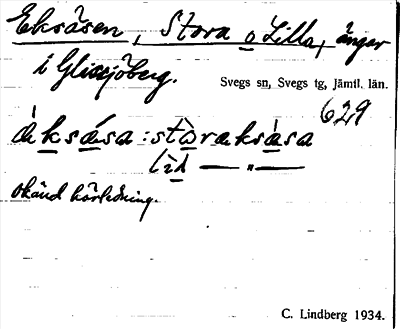 Eksåsen, Stora o Lilla, ängar
i Glissjöberg.
Svegs sn, Svegs tg, Jämtl. län.
629
okänd härledning.
C. Lindberg 1934.